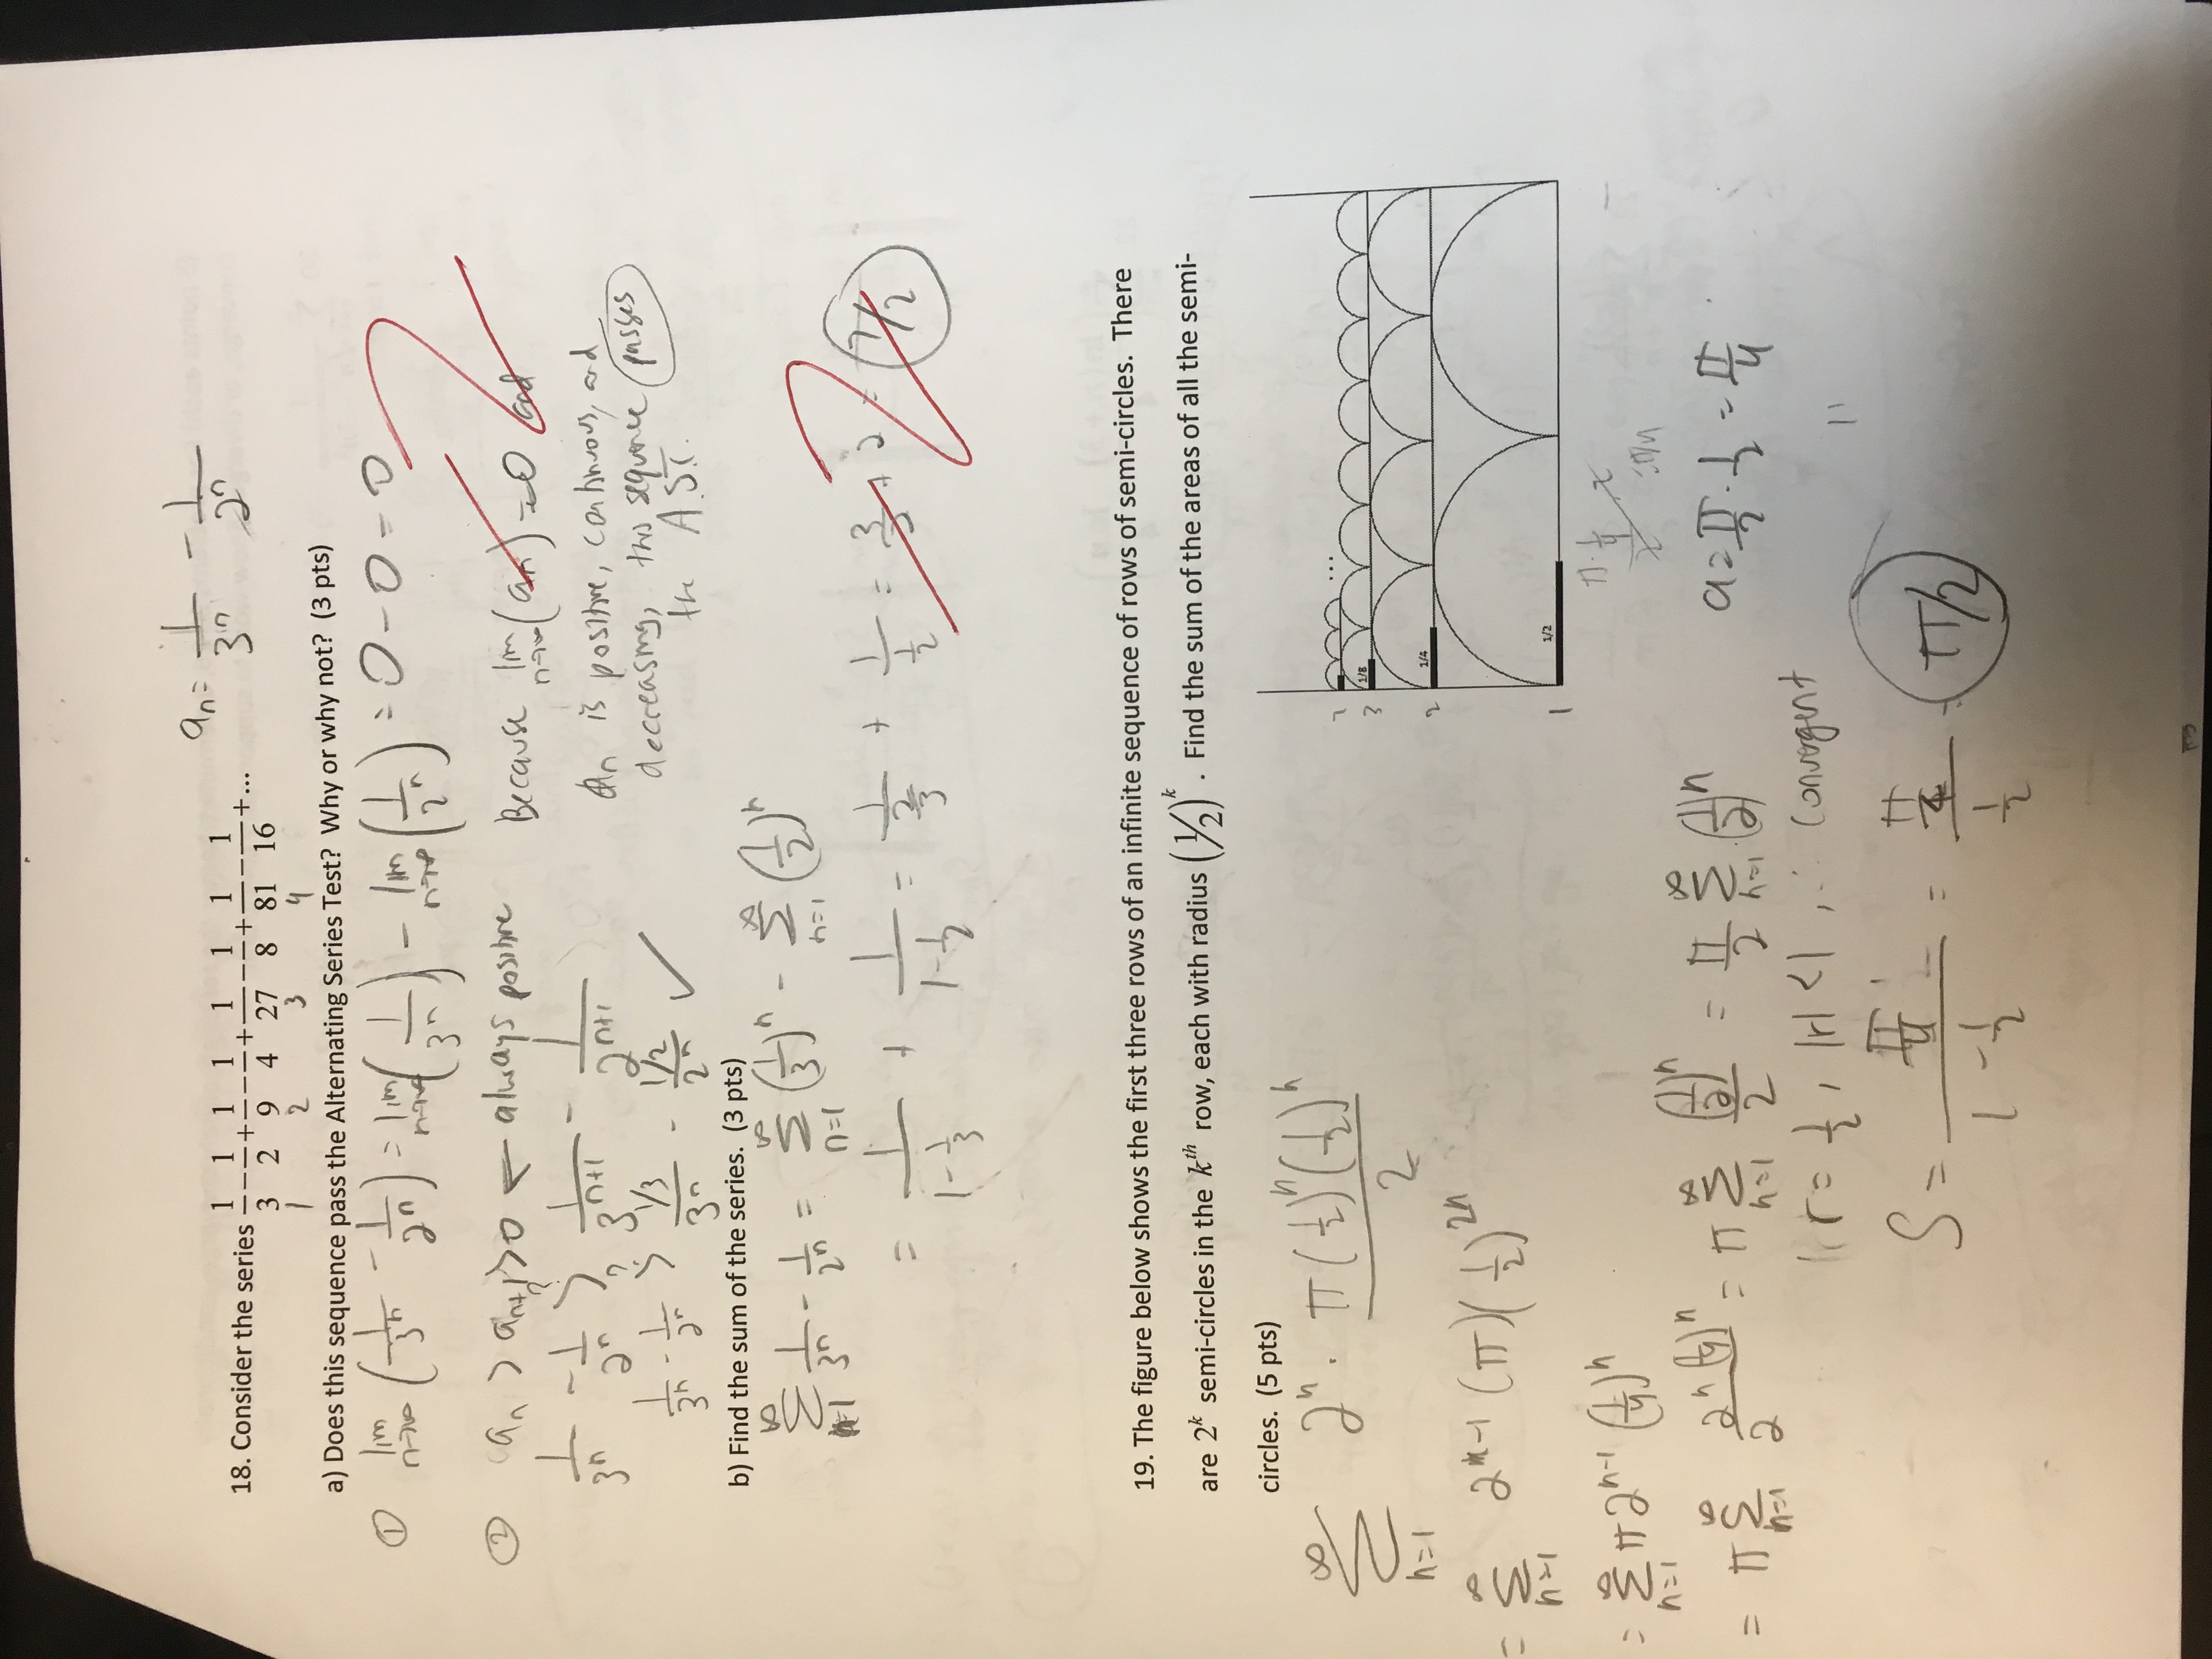 aₙ = 1/3ⁿ - 1/2ⁿ
18. Consider the series 1/3 - 1/2 + 1/9 - 1/4 + 1/27 - 1/8 + 1/81 - 1/16 + ...
1 2 3 4
a) Does this sequence pass the Alternating Series Test? Why or why not? (3 pts)
① lim n→∞ (1/3ⁿ - 1/2ⁿ) = lim n→∞ (1/3ⁿ) - lim n→∞ (1/2ⁿ) = 0 - 0 = 0
② aₙ > aₙ₊₁ > 0 ← always positive
1/3ⁿ - 1/2ⁿ >? 1/3ⁿ⁺¹ - 1/2ⁿ⁺¹
1/3ⁿ - 1/2ⁿ >? (1/3)/3ⁿ - (1/2)/2ⁿ ✓
Because lim n→∞ (aₙ) = 0 and
aₙ is positive, continuous, and
decreasing, this sequence passes
the A.S.T.
b) Find the sum of the series. (3 pts)
∞ Σ n=1 1/3ⁿ - 1/2ⁿ = ∞ Σ n=1 (1/3)ⁿ - ∞ Σ n=1 (1/2)ⁿ
= 1/(1 - 1/3) + 1/(1 - 1/2) = 1/(2/3) + 1/(1/2) = 3/2 + 2 = 7/2
19. The figure below shows the first three rows of an infinite sequence of rows of semi-circles. There
are 2ᵏ semi-circles in the kᵗʰ row, each with radius (1/2)ᵏ. Find the sum of the areas of all the semi-
circles. (5 pts)
∞ Σ n=1 2ⁿ · π(1/2)ⁿ(1/2)ⁿ/2
= ∞ Σ n=1 2ⁿ⁻¹ (π)(1/2)²ⁿ
= ∞ Σ n=1 π2ⁿ⁻¹ (1/4)ⁿ
= π ∞ Σ n=1 2ⁿ(1/4)ⁿ/2 = π ∞ Σ n=1 (1/2)ⁿ/2 = π/2 ∞ Σ n=1 (1/2)ⁿ
...
3 1/8
2 1/4
1 1/2
a = π/2 · 1/2 = π/4
r = 1/2, |r| < 1, ∴ convergent
S = (π/4)/(1 - 1/2) = (π/4)/(1/2) = π/2